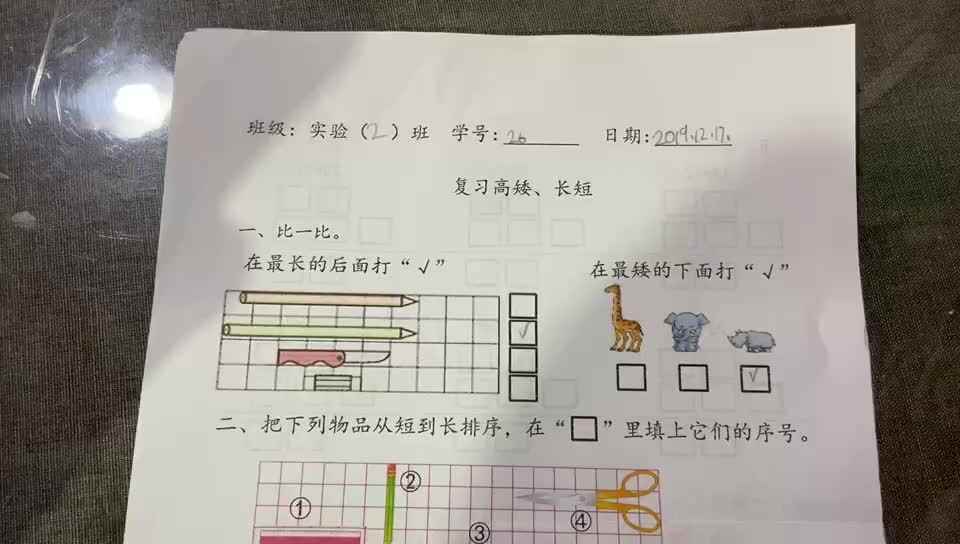 班级：实验（2）班 学号：26 日期：2019.12.17.
复习高矮、长短
一、比一比。
在最长的后面打“√” 在最矮的下面打“√”
√
√
二、把下列物品从短到长排序，在“□”里填上它们的序号。
②
①
④
③